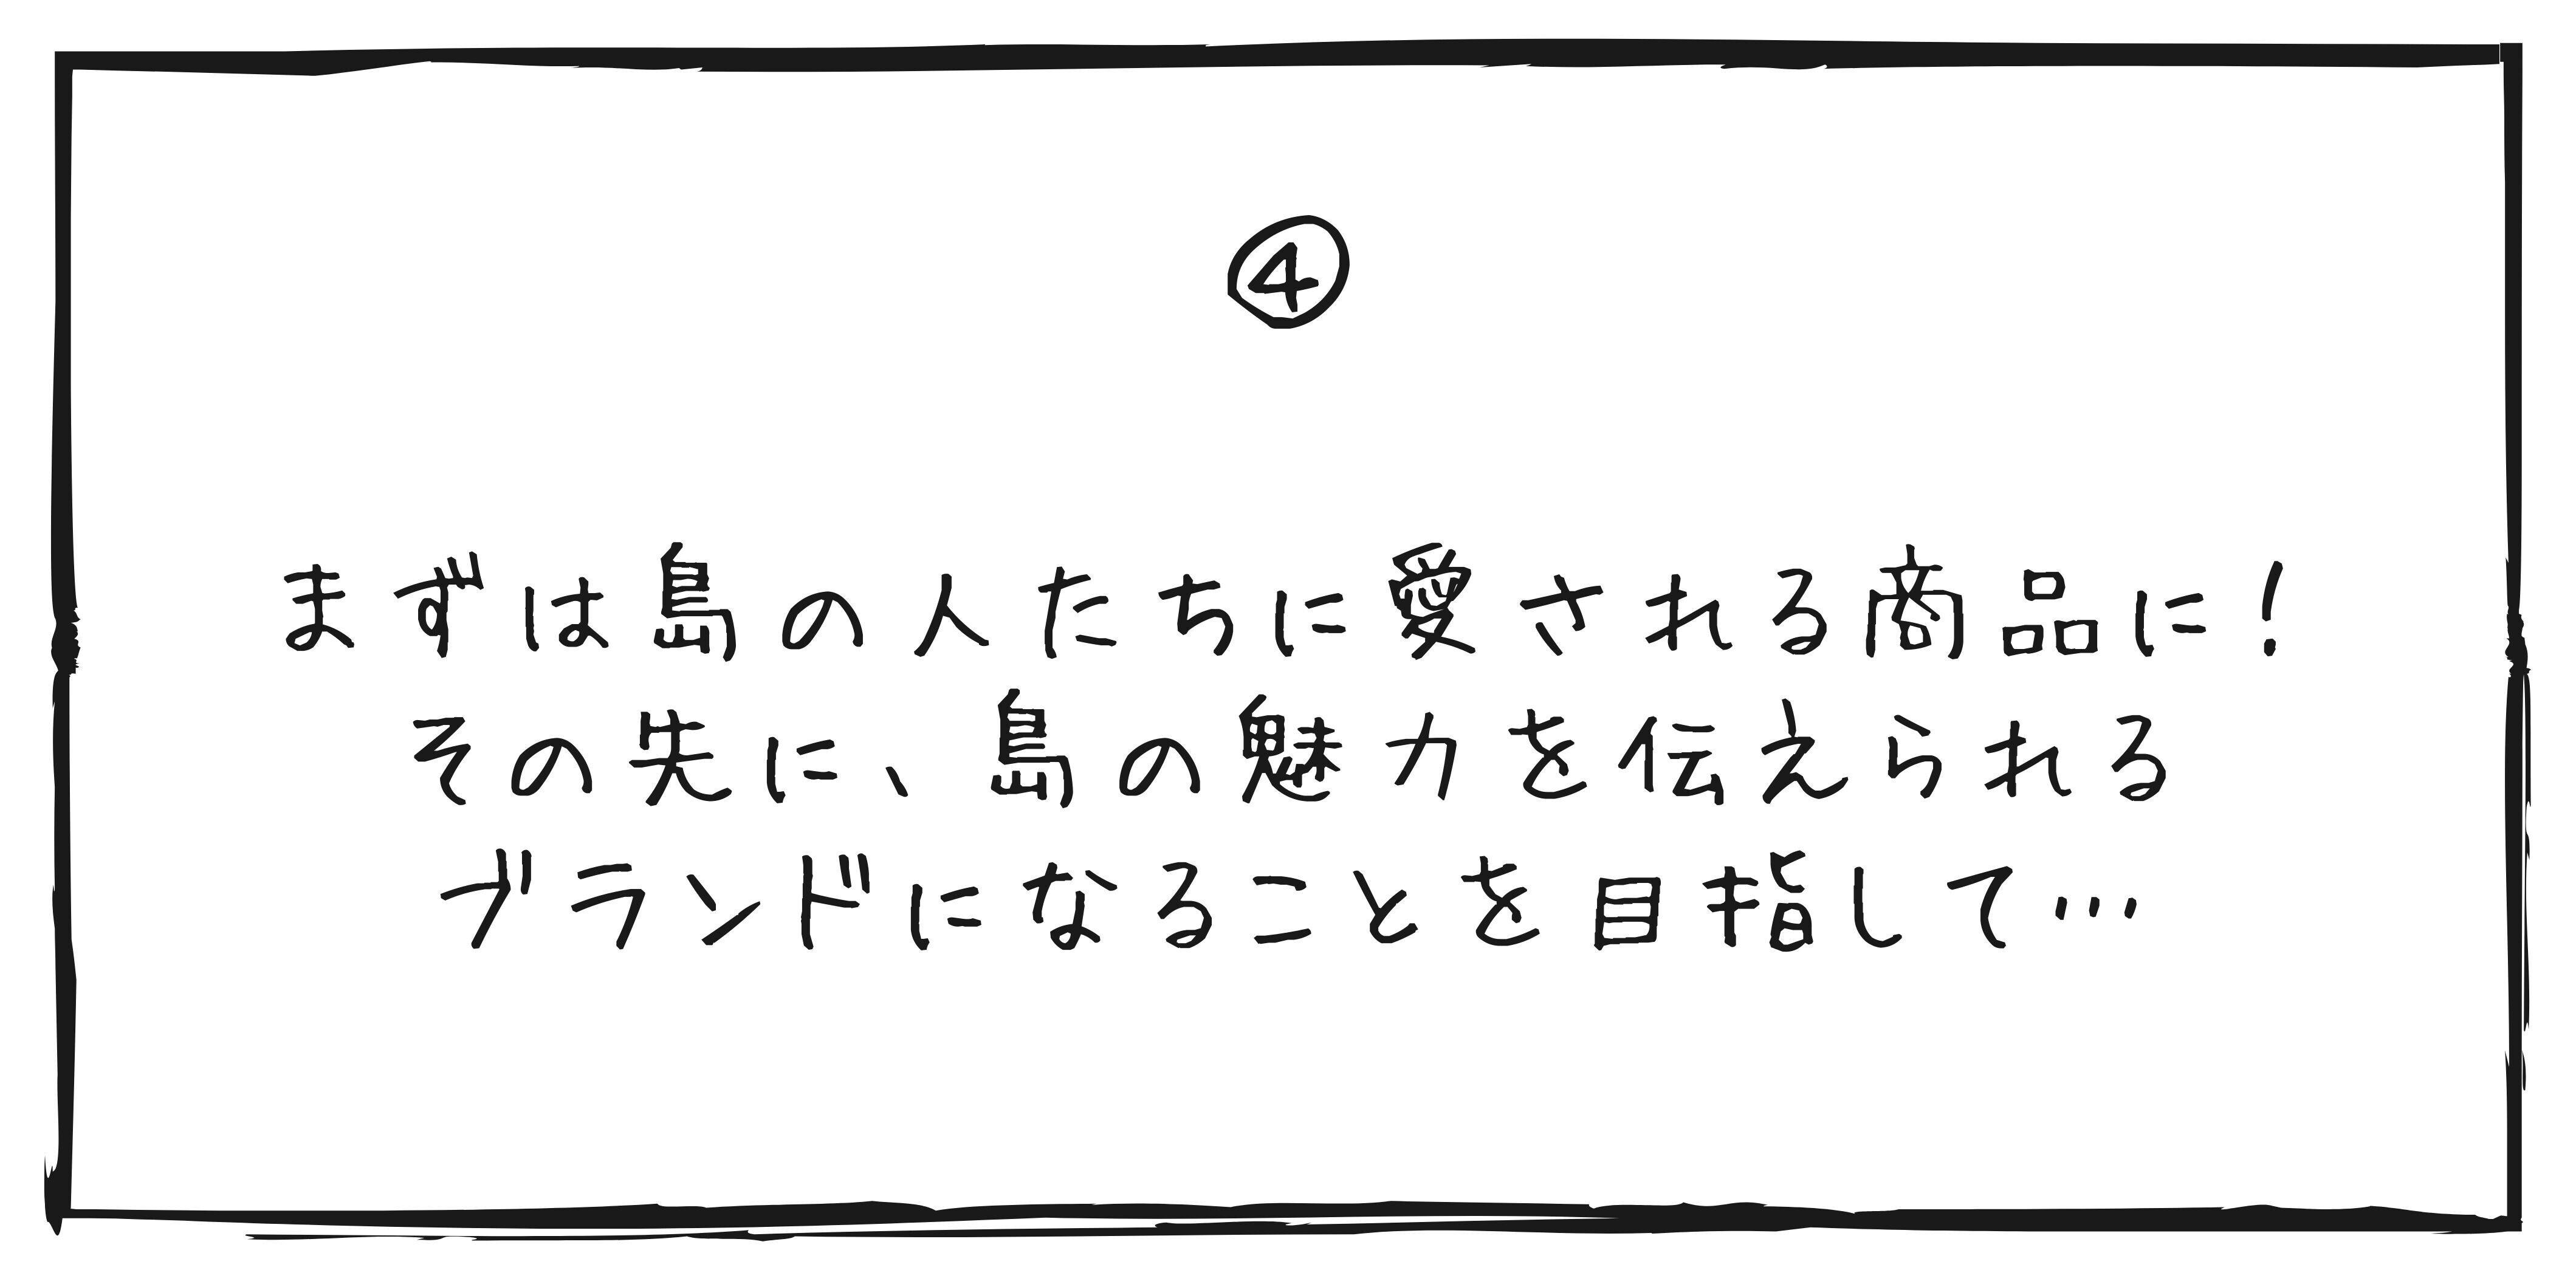 ④
まずは島の人たちに愛される商品に！
その先に、島の魅力を伝えられる
ブランドになることを目指して…